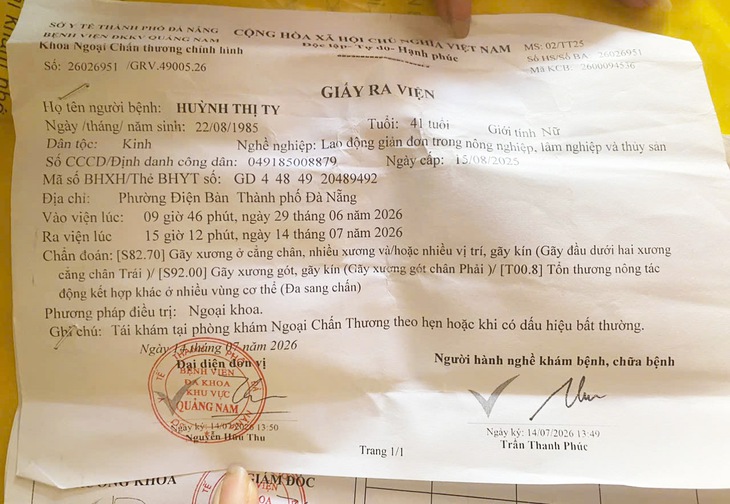 SỞ Y TẾ THÀNH PHỐ ĐÀ NẴNG
BỆNH VIỆN ĐKKV QUẢNG NAM
Khoa Ngoại Chấn thương chỉnh hình
Số: 26026951 /GRV.49005.26
CỘNG HÒA XÃ HỘI CHỦ NGHĨA VIỆT NAM
Độc lập - Tự do - Hạnh phúc
MS: 02/TT25
Số HS/Số BA 26026951
Mã KCB: 2600094536
GIẤY RA VIỆN
Họ tên người bệnh: HUỲNH THỊ TY
Ngày /tháng/ năm sinh: 22/08/1985 Tuổi: 41 tuổi Giới tính Nữ
Dân tộc: Kinh Nghề nghiệp: Lao động giản đơn trong nông nghiệp, lâm nghiệp và thủy sản
Số CCCD/Định danh công dân: 049185008879 Ngày cấp: 15/08/2025
Mã số BHXH/Thẻ BHYT số: GD 4 48 49 20489492
Địa chỉ: Phường Điện Bàn Thành phố Đà Nẵng
Vào viện lúc: 09 giờ 46 phút, ngày 29 tháng 06 năm 2026
Ra viện lúc: 15 giờ 12 phút, ngày 14 tháng 07 năm 2026
Chẩn đoán: [S82.70] Gãy xương ở cẳng chân, nhiều xương và/hoặc nhiều vị trí, gãy kín (Gãy đầu dưới hai xương
cẳng chân Trái )/ [S92.00] Gãy xương gót, gãy kín (Gãy xương gót chân Phải )/ [T00.8] Tổn thương nông tác
động kết hợp khác ở nhiều vùng cơ thể (Đa sang chấn)
Phương pháp điều trị: Ngoại khoa.
Ghi chú: Tái khám tại phòng khám Ngoại Chấn Thương theo hẹn hoặc khi có dấu hiệu bất thường.
Ngày 14 tháng 07 năm 2026
Đại diện đơn vị
Người hành nghề khám bệnh, chữa bệnh
BỆNH VIỆN
ĐA KHOA
KHU VỰC
QUẢNG NAM
Ngày ký: 14/07/2026 13:50
Nguyễn Hữu Thu
Ngày ký: 14/07/2026 13:49
Trần Thanh Phúc
Trang 1/1
KHOA
GIÁM ĐỐC